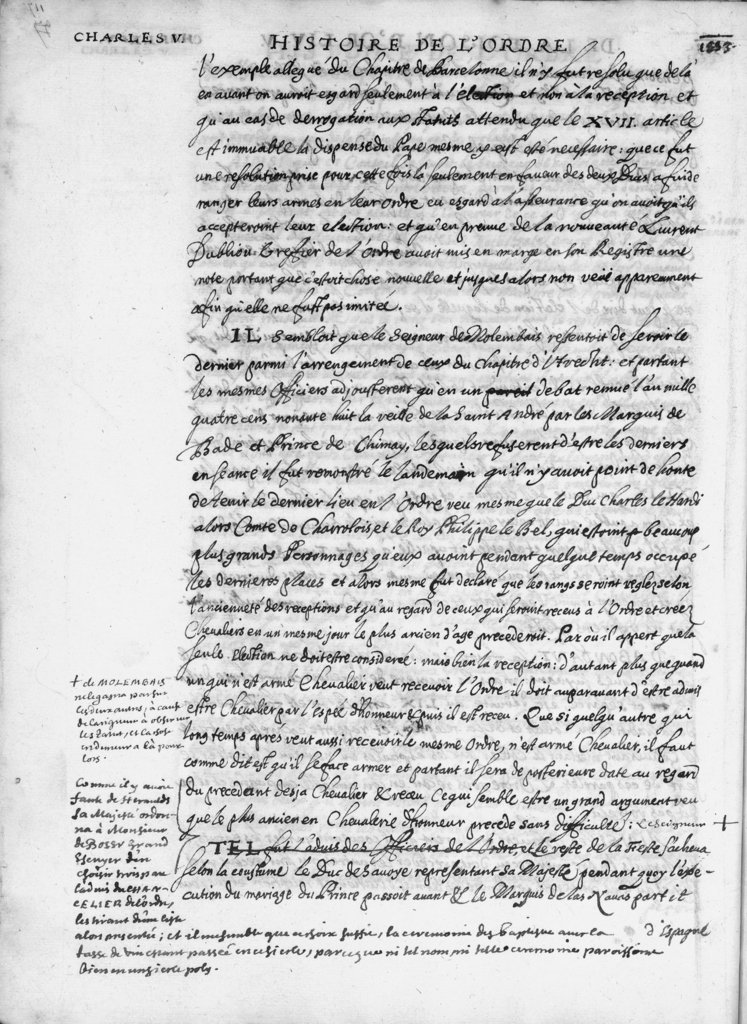 CHARLES V.
HISTOIRE DE L'ORDRE
1555.
l'exemple allegué du Chapitre de Barcelonne il n'y fut resolu que de là
en avant on auroit esgard seulement à l'élection et non a la reception et
qu'au cas de derrogation aux statuts attendu que le XVII. article
est immuable la dispense du Pape mesme y est esté necessaire: que ce fut
une resolution prise pour cette fois là seulement en faveur des deux Ducs afin de
ranger leurs armes en leur ordre eu esgard à l'asseurance qu'on avoit qu'ils
accepteroint leur election: et qu'en preuve de la nouveauté Laurent
Dublioul Greffier de l'Ordre avoit mis en marge en son Registre une
note portant que c'estoit chose nouvelle et jusques alors non veüe apparemment
afin qu'elle ne fust pas imitée.
IL sembloit que le Seigneur de Molembais ressentoit de se voir le
dernier parmi l'arrengement de ceux du Chapitre d'Utrecht: et partant
les mesmes Officiers adjousterent qu'en un pareil debat remué l'an mille
quatre cens nonante huit la veille de la Saint André par les Marquis de
Bade et Prince de Chimay, lesquels refuserent d'estre les derniers
en seance il fut remonstré le landemain qu'il n'y avoit point de honte
de tenir le dernier lieu en l'Ordre veu mesme que le Duc Charles le Hardi
alors Comte de Charrolois et le Roy Philippe le Bel, qui estoint beaucoup
plus grands Personnages qu'eux avoint pendant quelque temps occupé
les dernieres places et alors mesme fut declaré que les rangs seroint reglez selon
l'ancienneté des receptions et qu'au regard de ceux qui seroint receus à l'Ordre et creez
Chevaliers en un mesme jour le plus ancien d'age precederoit. Par où il appert que la
seule Election ne doit estre considerée: mais bien la reception: d'autant plus que quand
un qui n'est armé Chevalier veut recevoir l'Ordre il doit auparavant d'estre admis
estre Chevalier par l'espée d'honneur & puis il est receu. Que si quelqu'autre qui
long temps aprés veut aussi recevoir le mesme Ordre, n'est armé Chevalier, il faut
comme dit est qu'il se face armer et partant il sera de posterieure date au regard
du precedent desja Chevalier & receu. Ce qui semble estre un grand argument veu
que le plus ancien en Chevalerie d'honneur precede sans difficulté: Le Seigneur +
TEL fut l'advis des Officiers de l'Ordre, et le reste de la Feste s'acheva
selon la coustume le Duc de Savoye representant sa Majesté; pendant quoy l'exe-
cution du mariage du Prince passoit avant & le Marquis de las Navas partit
d'Espagne
+ de MOLEMBAIS
ne le gagna par sur
les deux autres, à cause
de la rigueur à observer
les statuts, et la dest
en demeura là pour
lors.
Comme il y avoit
faute de Herauds
sa Majesté ordon-
na à Monsieur
de BOSSU Grand
Escuyer d'en
choisir trois par
l'advis du CHAN-
CELIER de l'Ordre,
les tirant d'une liste
alors presentée; et il me semble que
la ceremonie des baptesme avec la
tasse de vin
par ce que ni tel nom, ni telle ceremonie paroissoint
bien en un siecle poly.